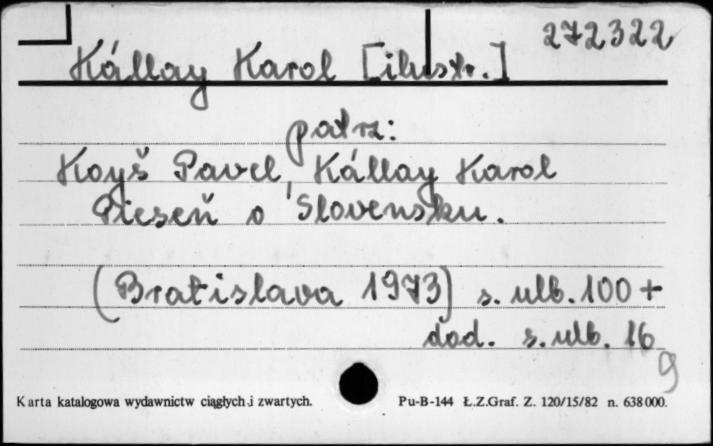 272322
Kállay Karol [ilustr.]
patrz:
Koyš Pavel, Kállay Karol
Pieseň o Slovensku.
(Bratislava 1973) s. ulb. 100 +
dod. s. ulb. 16
9
Karta katalogowa wydawnictw ciągłych i zwartych. Pu-B-144 Ł.Z.Graf. Z. 120/15/82 n. 638000.